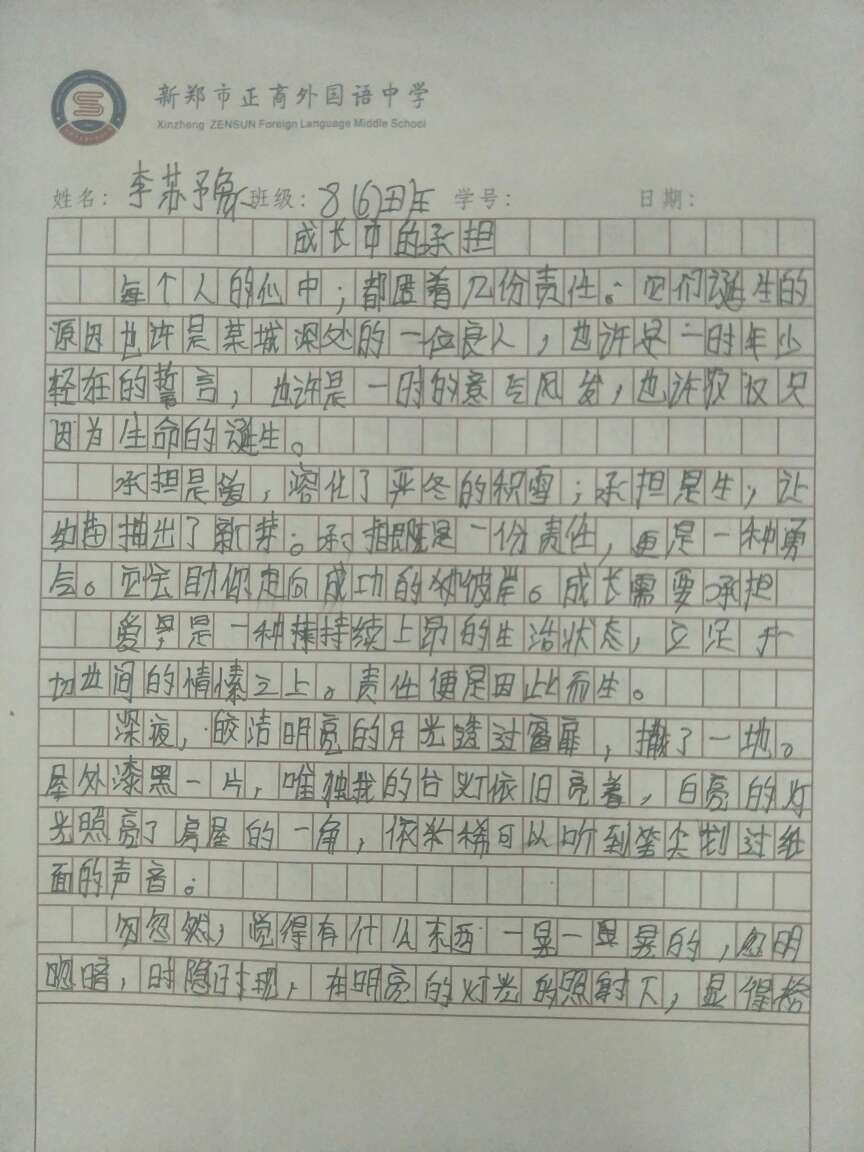 新郑市正商外国语中学
Xinzheng ZENSUN Foreign Language Middle School
姓名：李苏予 班级：8(6) 学号： 日期：
成长中的承担
每个人的心中；都匿着几份责任。它们诞生的
原因也许是某城深处的一位良人，也许是一时年少
轻狂的誓言，也许是一时的意气风发，也许仅仅只
因为生命的诞生。
承担是爱，溶化了严冬的积雪；承担是生，让
幼苗抽出了新芽。承担既是一份责任，更是一种勇
气。它会助你走向成功的彼岸。成长需要承担
爱是一种持续上昂的生活状态，立足于
切世间的情愫之上。责任便是因此而生。
深夜，皎洁明亮的月光透过窗扉，撒了一地。
屋外漆黑一片，唯独我的台灯依旧亮着，白亮的灯
光照亮了房屋的一角，依稀可以听到笔尖划过纸
面的声音。
忽然，觉得有什么东西一晃一晃的，忽明
忽暗，时隐时现，在明亮的灯光的照射下，显得格